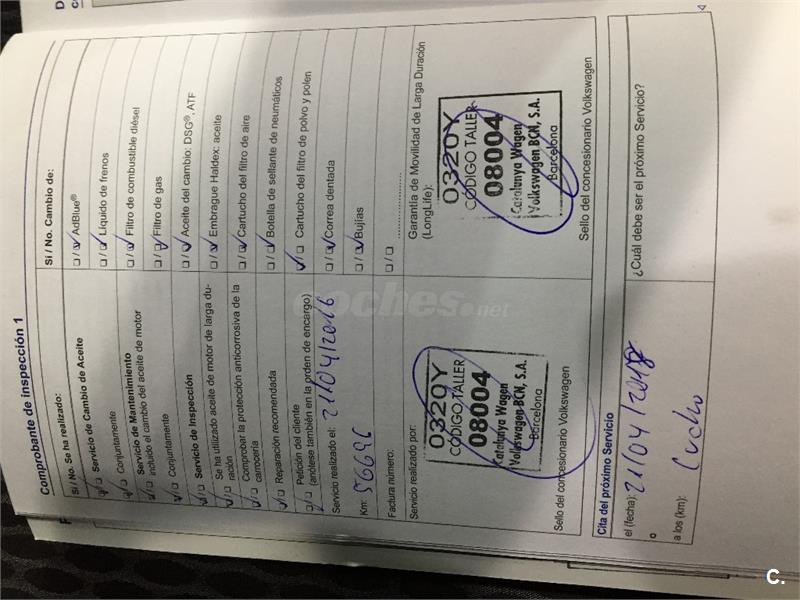 Comprobante de inspección 1
Sí / No. Se ha realizado:
Servicio de Cambio de Aceite
Conjuntamente
Servicio de Mantenimiento
incluido el cambio del aceite de motor
Conjuntamente
Servicio de Inspección
Se ha utilizado aceite de motor de larga du-
ración
Comprobar la protección anticorrosiva de la
carrocería
Reparación recomendada
Petición del cliente
(anótese también en la orden de encargo)
Servicio realizado el: 21/04/2016
Km
Factura número:
Servicio realizado por:
0320Y
CÓDIGO TALLER
08004
Catalunya Wagen
Volkswagen BCN, S.A.
Barcelona
Sello del concesionario Volkswagen
Sí / No. Cambio de:
AdBlue®
Líquido de frenos
Filtro de combustible diésel
Filtro de gas
Aceite del cambio: DSG®, ATF
Embrague Haldex: aceite
Cartucho del filtro de aire
Botella de sellante de neumáticos
Cartucho del filtro de polvo y polen
Correa dentada
Bujías
Garantía de Movilidad de Larga Duración
(LongLife):
0320Y
CÓDIGO TALLER
08004
Catalunya Wagen
Volkswagen BCN, S.A.
Barcelona
Sello del concesionario Volkswagen
Cita del próximo Servicio
el (fecha):
o
a los (km):
¿Cuál debe ser el próximo Servicio?
coches.net
C.